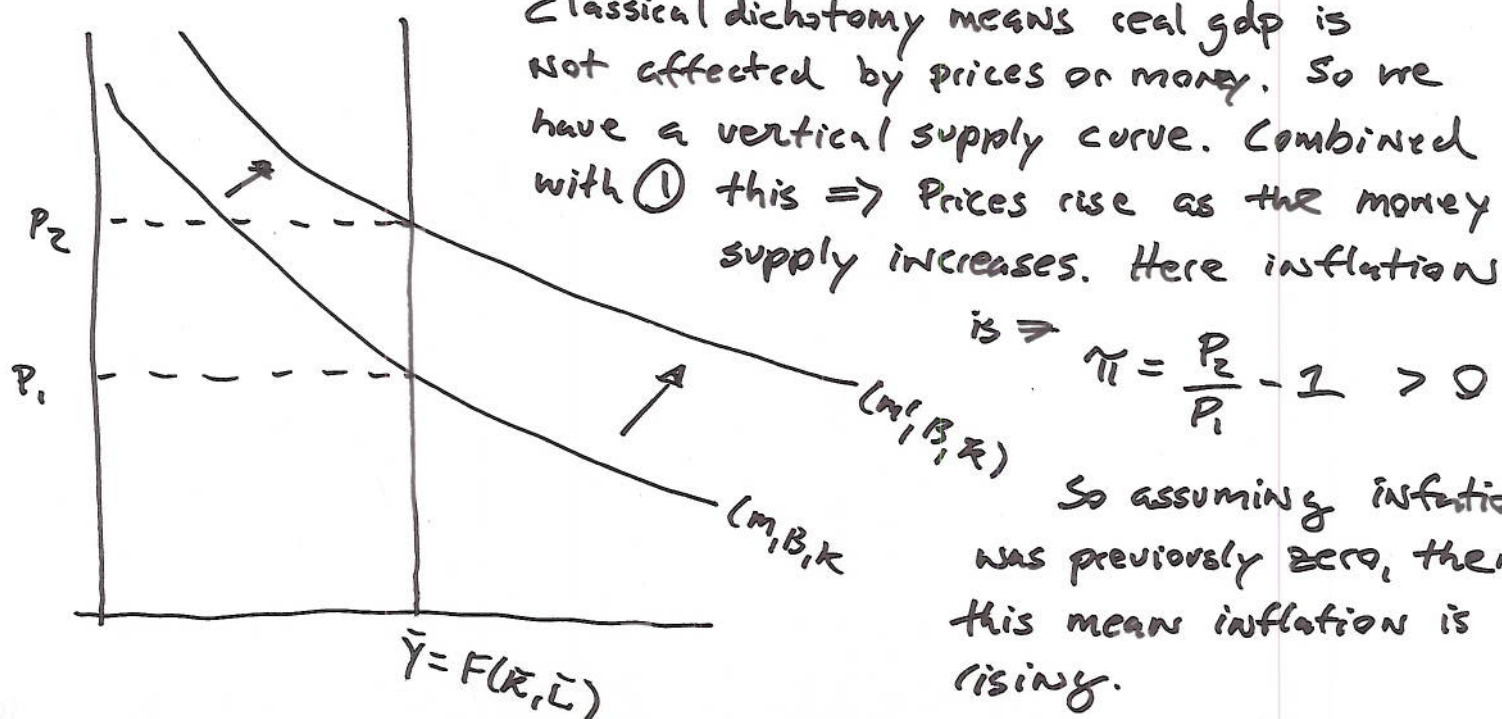 Classical dichotomy means real gdp is
not affected by prices or money. So we
have a vertical supply curve. Combined
with ① this => Prices rise as the money
supply increases. Here inflation
is =>
π = P₂/P₁ - 1 > 0
So assuming
was previously zero, then
this mean inflation is
rising.
P₂
P₁
(M', B, k̄)
(M, B, k
Ȳ = F(K̄, L̄)